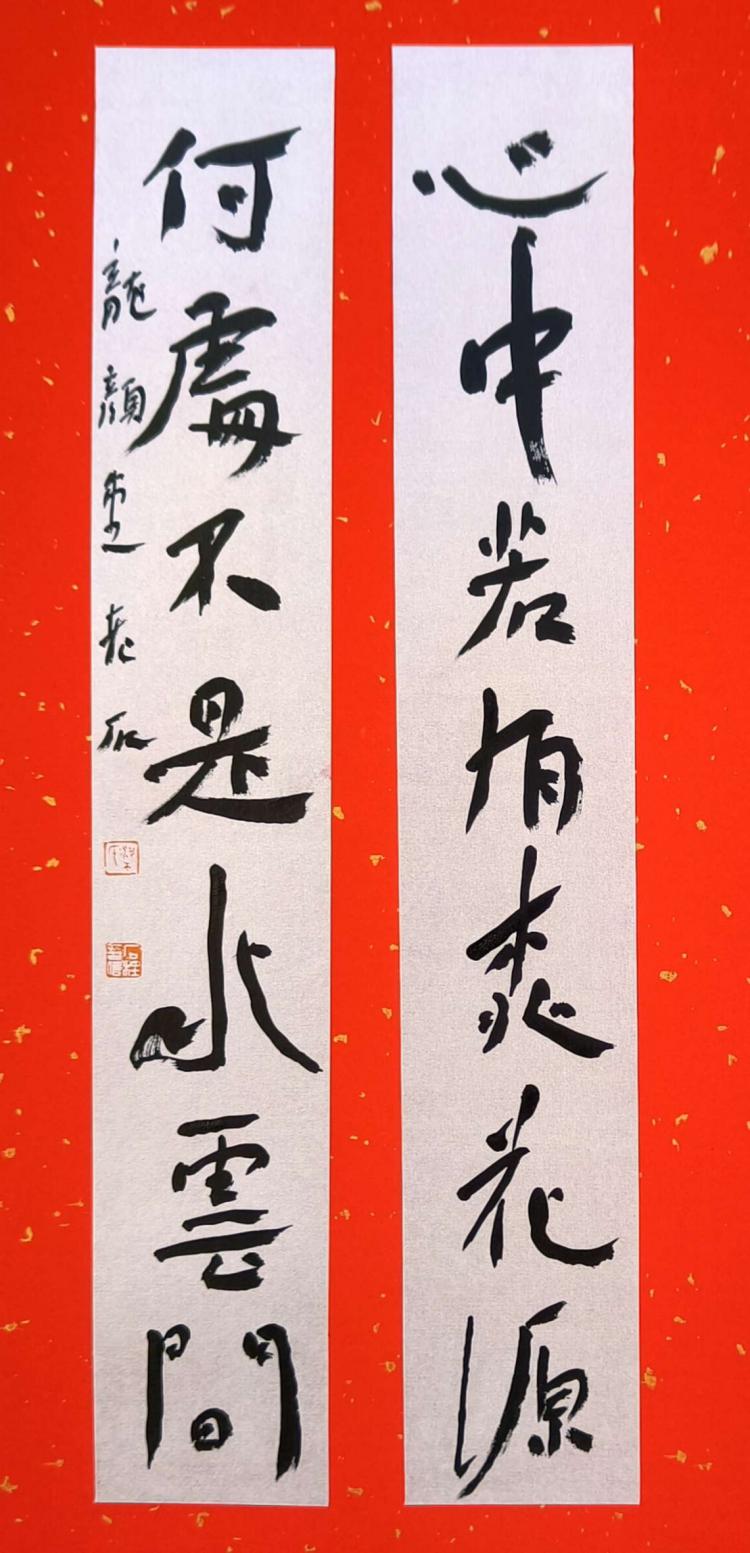 心中若有桃花源
何處不是水雲間
龍顏堂老石